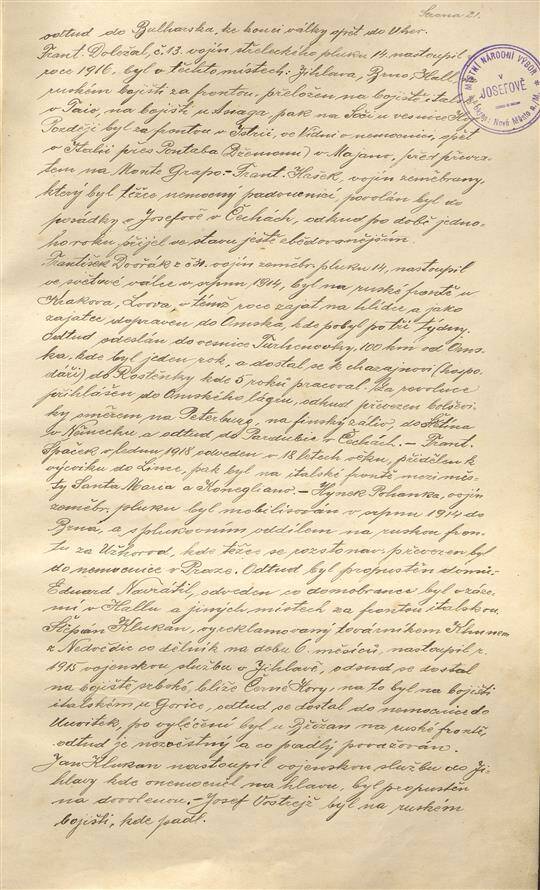 Strana 21.
MÍSTNÍ NÁRODNÍ VÝBOR
V
JOSEFOVĚ
odtud do Bulharska, ke konci války opět do Uher.
Frant. Doležal, č. 13. vojín střeleckého pluku 14, nastoupil
roce 1916, byl v těchto místech: Jihlava, Brno, Hall
ruském bojišti za frontou, přeložen na bojiště italské
v Taio, na bojišti u Asiaga, pak na Soči u vesnice
Později byl za frontou v Istrii, ve Vídni v nemocnici, opět
v Italii přes Pontabu v Majano, před převra-
tem na Monte Grapo. - Frant. Hašek, vojín zeměbrany,
který byl těžce nemocný padoucnicí, povolán byl do
posádky v Josefově v Čechách, odkud po době jedno-
ho roku přijel ve stavu ještě zbědovanějším.
František Dvořák z č. vojín zeměbr. pluku 14, nastoupil
ve světové válce v srpnu 1914, byl na ruské frontě u
Krakova, Lvova, v témž roce zajat na hlídce a jako
zajatec dopraven do Omska, kde pobyl po tři týdny.
Odtud odeslán do vesnice 100 km od Oms-
ka, kde byl jeden rok, a dostal se k chazajinovi (hospo-
dáři) do Rostěnky kde 5 roků pracoval. Za revoluce
přihlášen do Omského lágru, odkud převezen bolševi-
ky směrem na Peterburg, na finský záliv, do Štětína
v Německu a odtud do Pardubic v Čechách. - Frant.
Špaček, v lednu 1918 odveden v 18 letech věku, přidělen k
výcviku do Lince, pak byl na italské frontě mezi mís-
ty Santa Maria a Konegliano. - Hynek Pohanka, vojín
zeměbr. pluku byl mobilisován v srpnu 1914 do
Brna, a s plukovním oddílem na ruskou fron-
tu za Užhorod, kde těžce se rozstonav, převezen byl
do nemocnice v Praze. Odtud byl propuštěn domů.
Eduard Navrátil, odveden co domobranec byl v záze-
mí v Hallu a jiných místech za frontou italskou.
Štěpán Klukan, vyreklamovaný továrníkem
z Nedvědic co dělník na dobu 6 měsíců, nastoupil r.
1915 vojenskou službu v Jihlavě, odsud se dostal
na bojiště srbské, blíže Černé Hory, na to byl na bojišti
italském u Gorice, odtud se dostal do nemocnice do
po vyléčení byl u Břežan na ruské frontě,
odtud je nezvěstný a co padlý považován.
Jan Klukan nastoupil vojenskou službu do Ji-
hlavy kde onemocněl na hlavu, byl propuštěn
na dovolenou. - Josef Vostrejž byl na ruském
bojišti, kde padl.